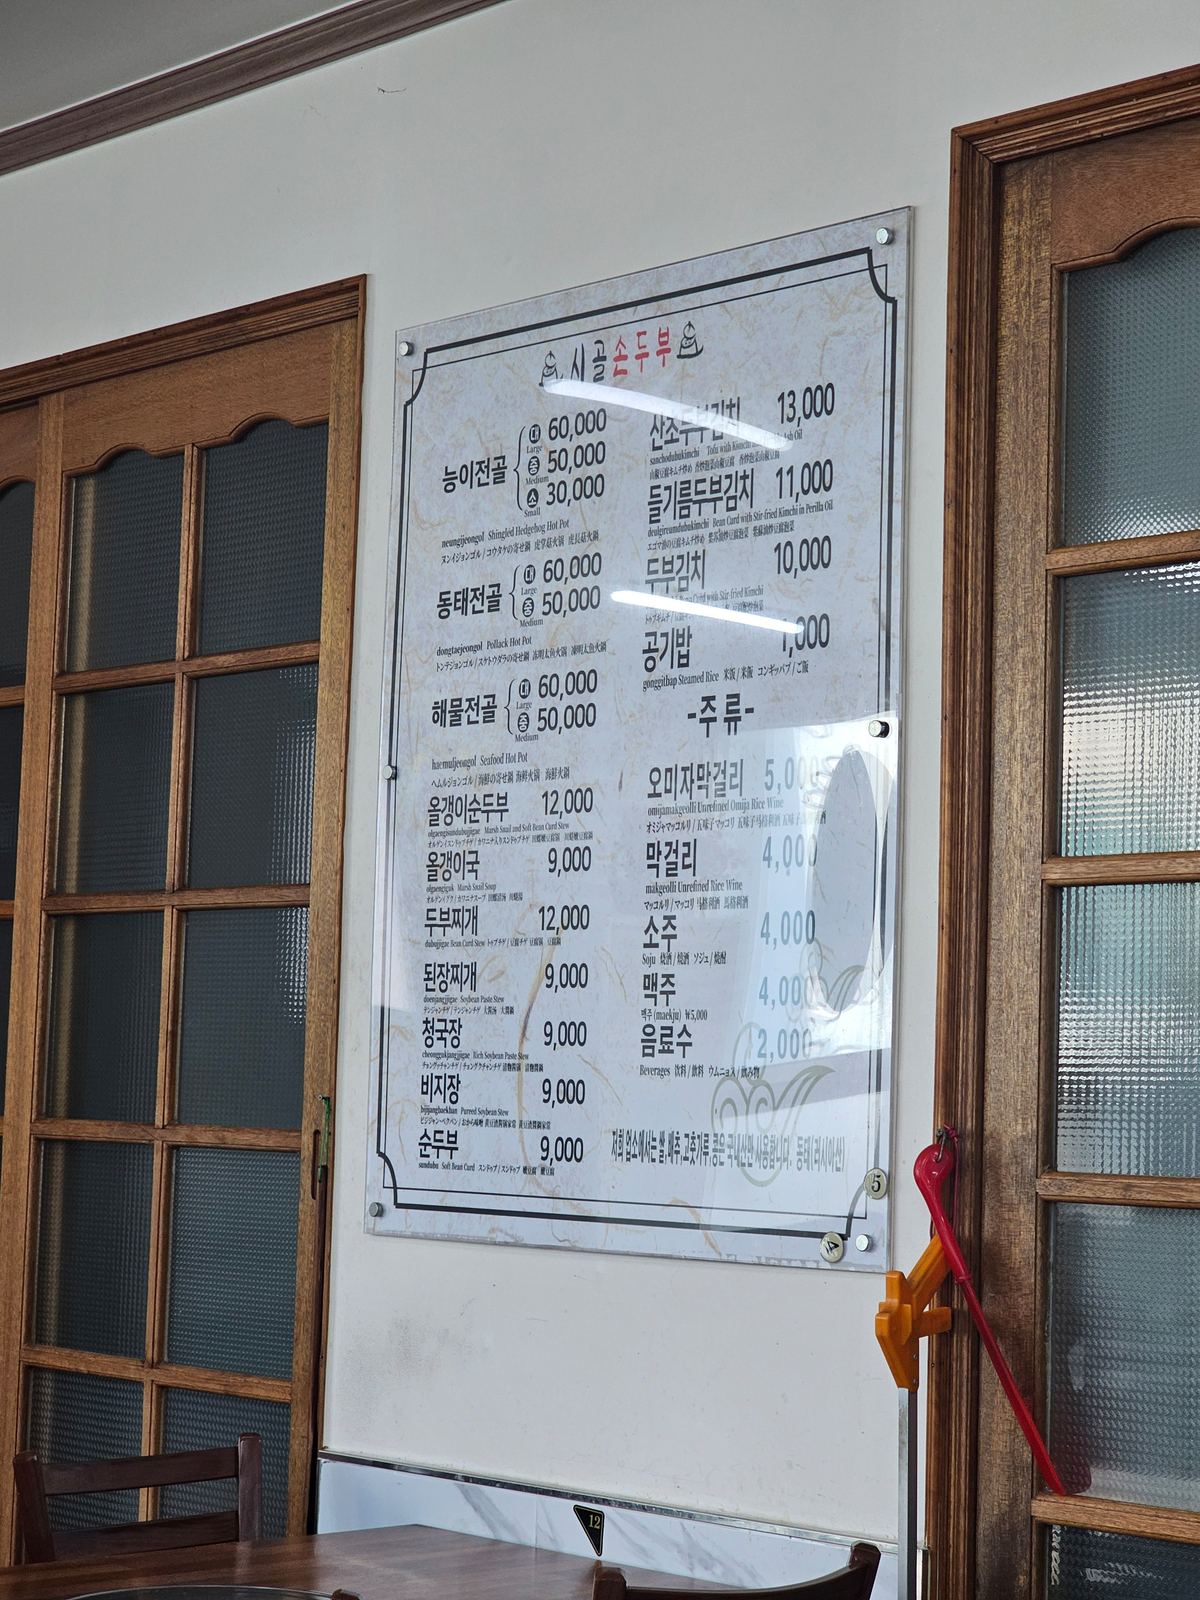 시골손두부
능이전골
대 60,000
Large
중 50,000
Medium
소 30,000
Small
neungijeongol Shingled Hedgehog Hot Pot
ヌンイジョンゴル / コウタケの寄せ鍋 虎掌菇火锅 虎長菇火鍋
동태전골
대 60,000
Large
중 50,000
Medium
dongtaejeongol Pollack Hot Pot
トンテジョンゴル / スケトウダラの寄せ鍋 冻明太鱼火锅 凍明太魚火鍋
해물전골
대 60,000
Large
중 50,000
Medium
haemuljeongol Seafood Hot Pot
ヘムルジョンゴル / 海鮮の寄せ鍋 海鲜火锅 海鮮火鍋
올갱이순두부 12,000
olgaengisundubujjigae Marsh Snail and Soft Bean Curd Stew
올갱이국 9,000
olgaengiguk Marsh Snail Soup
オルゲンイグク / カワニナスープ
두부찌개 12,000
dubujjigae Bean Curd Stew トゥブチゲ / 豆腐チゲ 豆腐锅 豆腐鍋
된장찌개 9,000
doenjangjjigae Soybean Paste Stew
テンジャンチゲ / テンジャンチゲ 大酱汤 大醬鍋
청국장 9,000
cheonggukjangjjigae Rich Soybean Paste Stew
비지장 9,000
bijijangbaekban Pureed Soybean Stew
순두부 9,000
sundubu Soft Bean Curd スンドゥブ / スンドゥブ 嫩豆腐 嫩豆腐
산초두부김치 13,000
sanchodubukimchi Tofu with Kimchi Ash Oil
들기름두부김치 11,000
deulgireumdubukimchi Bean Curd with Stir-fried Kimchi in Perilla Oil
두부김치 10,000
Bean Curd with Stir-fried Kimchi
공기밥 1,000
gonggitbap Steamed Rice 米饭 / 米飯 コンギッパプ / ご飯
-주류-
오미자막걸리 5,000
omijamakgeolli Unrefined Omija Rice Wine
オミジャマッコルリ / 五味子マッコリ 五味子马格利酒
막걸리 4,000
makgeolli Unrefined Rice Wine
マッコルリ / マッコリ 马格利酒 馬格利酒
소주 4,000
Soju 烧酒 / 燒酒 ソジュ / 焼酎
맥주 4,000
맥주 (maekju) ₩5,000
음료수 2,000
Beverages 饮料 / 飲料 ウムニョス / 飲み物
저희 업소에서는 쌀,배추,고춧가루,콩은 국내산만 사용합니다. 동태(러시아산)
5
4
12